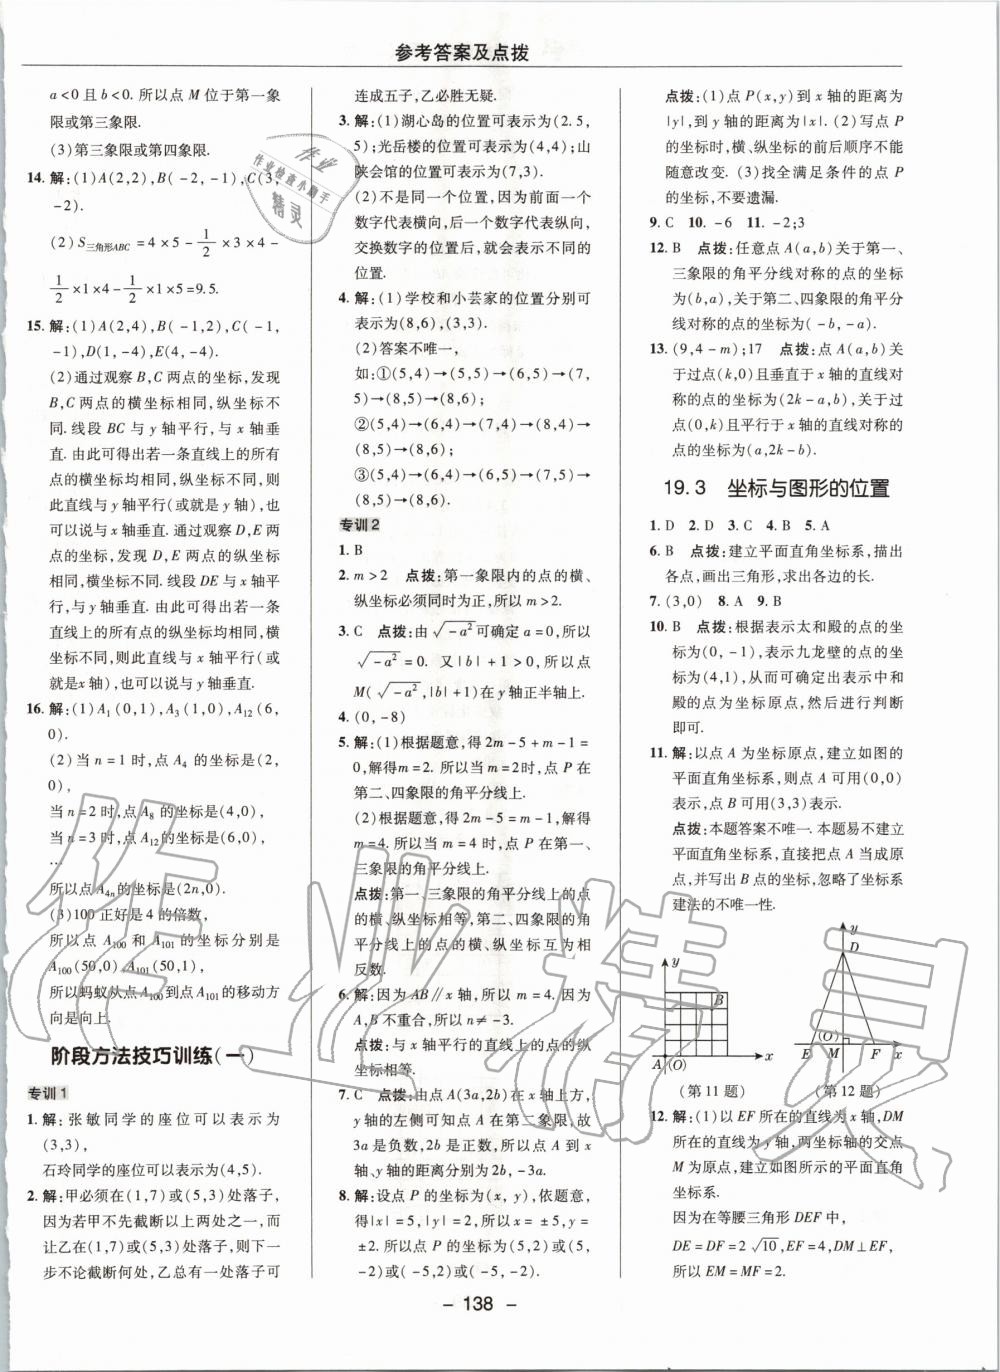 参考答案及点拨
a<0且b<0. 所以点M位于第一象
限或第三象限.
(3)第三象限或第四象限.
14. 解:(1)A(2,2),B(-2,-1),C(3,
-2).
(2)S三角形ABC=4×5-1/2×3×4-
1/2×1×4-1/2×1×5=9.5.
15. 解:(1)A(2,4),B(-1,2),C(-1,
-1),D(1,-4),E(4,-4).
(2)通过观察B,C两点的坐标,发现
B,C两点的横坐标相同,纵坐标不
同. 线段BC与y轴平行,与x轴垂
直. 由此可得出若一条直线上的所有
点的横坐标均相同,纵坐标不同,则
此直线与y轴平行(或就是y轴),也
可以说与x轴垂直. 通过观察D,E两
点的坐标,发现D,E两点的纵坐标
相同,横坐标不同. 线段DE与x轴平
行,与y轴垂直. 由此可得出若一条
直线上的所有点的纵坐标均相同,横
坐标不同,则此直线与x轴平行(或
就是x轴),也可以说与y轴垂直.
16. 解:(1)A1(0,1),A3(1,0),A12(6,
0).
(2)当n=1时,点A4的坐标是(2,
0),
当n=2时,点A8的坐标是(4,0),
当n=3时,点A12的坐标是(6,0),
…
所以点A4n的坐标是(2n,0).
(3)100正好是4的倍数,
所以点A100和A101的坐标分别是
A100(50,0),A101(50,1),
所以蚂蚁从点A100到点A101的移动方
向是向上.
阶段方法技巧训练(一)
专训1
1. 解:张敏同学的座位可以表示为
(3,3),
石玲同学的座位可以表示为(4,5).
2. 解:甲必须在(1,7)或(5,3)处落子,
因为若甲不先截断以上两处之一,而
让乙在(1,7)或(5,3)处落子,则下一
步不论截断何处,乙总有一处落子可
连成五子,乙必胜无疑.
3. 解:(1)湖心岛的位置可表示为(2.5,
5);光岳楼的位置可表示为(4,4);山
陕会馆的位置可表示为(7,3).
(2)不是同一个位置,因为前面一个
数字代表横向,后一个数字代表纵向,
交换数字的位置后,就会表示不同的
位置.
4. 解:(1)学校和小芸家的位置分别可
表示为(8,6),(3,3).
(2)答案不唯一,
如:①(5,4)→(5,5)→(6,5)→(7,
5)→(8,5)→(8,6);
②(5,4)→(6,4)→(7,4)→(8,4)→
(8,5)→(8,6);
③(5,4)→(6,4)→(6,5)→(7,5)→
(8,5)→(8,6).
专训2
1. B
2. m>2 点拨:第一象限内的点的横、
纵坐标必须同时为正,所以m>2.
3. C 点拨:由√-a²可确定a=0,所以
√-a²=0. 又|b|+1>0,所以点
M(√-a²,|b|+1)在y轴正半轴上.
4. (0,-8)
5. 解:(1)根据题意,得2m-5+m-1=
0,解得m=2. 所以当m=2时,点P在
第二、四象限的角平分线上.
(2)根据题意,得2m-5=m-1,解得
m=4. 所以当m=4时,点P在第一、
三象限的角平分线上.
点拨:第一、三象限的角平分线上的点
的横、纵坐标相等,第二、四象限的角
平分线上的点的横、纵坐标互为相
反数.
6. 解:因为AB∥x轴,所以m=4. 因为
A,B不重合,所以n≠-3.
点拨:与x轴平行的直线上的点的纵
坐标相等.
7. C 点拨:由点A(3a,2b)在x轴上方,
y轴的左侧可知点A在第二象限,故
3a是负数,2b是正数,所以点A到x
轴、y轴的距离分别为2b,-3a.
8. 解:设点P的坐标为(x,y),依题意,
得|x|=5,|y|=2,所以x=±5,y=
±2. 所以点P的坐标为(5,2)或(5,
-2)或(-5,2)或(-5,-2).
点拨:(1)点P(x,y)到x轴的距离为
|y|,到y轴的距离为|x|. (2)写点P
的坐标时,横、纵坐标的前后顺序不能
随意改变. (3)找全满足条件的点P
的坐标,不要遗漏.
9. C 10. -6 11. -2;3
12. B 点拨:任意点A(a,b)关于第一、
三象限的角平分线对称的点的坐标
为(b,a),关于第二、四象限的角平分
线对称的点的坐标为(-b,-a).
13. (9,4-m);17 点拨:点A(a,b)关
于过点(k,0)且垂直于x轴的直线对
称的点的坐标为(2k-a,b),关于过点
(0,k)且平行于x轴的直线对称的
点的坐标为(a,2k-b).
19.3 坐标与图形的位置
1. D 2. D 3. C 4. B 5. A
6. B 点拨:建立平面直角坐标系,描出
各点,画出三角形,求出各边的长.
7. (3,0) 8. A 9. B
10. B 点拨:根据表示太和殿的点的坐
标为(0,-1),表示九龙壁的点的坐
标为(4,1),从而可确定出表示中和
殿的点为坐标原点,然后进行判断
即可.
11. 解:以点A为坐标原点,建立如图的
平面直角坐标系,则点A可用(0,0)
表示,点B可用(3,3)表示.
点拨:本题答案不唯一. 本题易不建立
平面直角坐标系,直接把点A当成原
点,并写出B点的坐标,忽略了坐标系
建法的不唯一性.
y
B
A (O) x
y
D
(O)
E M F x
(第11题) (第12题)
12. 解:(1)以EF所在的直线为x轴,DM
所在的直线为y轴,两坐标轴的交点
M为原点,建立如图所示的平面直角
坐标系.
因为在等腰三角形DEF中,
DE=DF=2√10,EF=4,DM⊥EF,
所以EM=MF=2.
- 138 -
作业
作业检查小助手
精灵
作业精灵